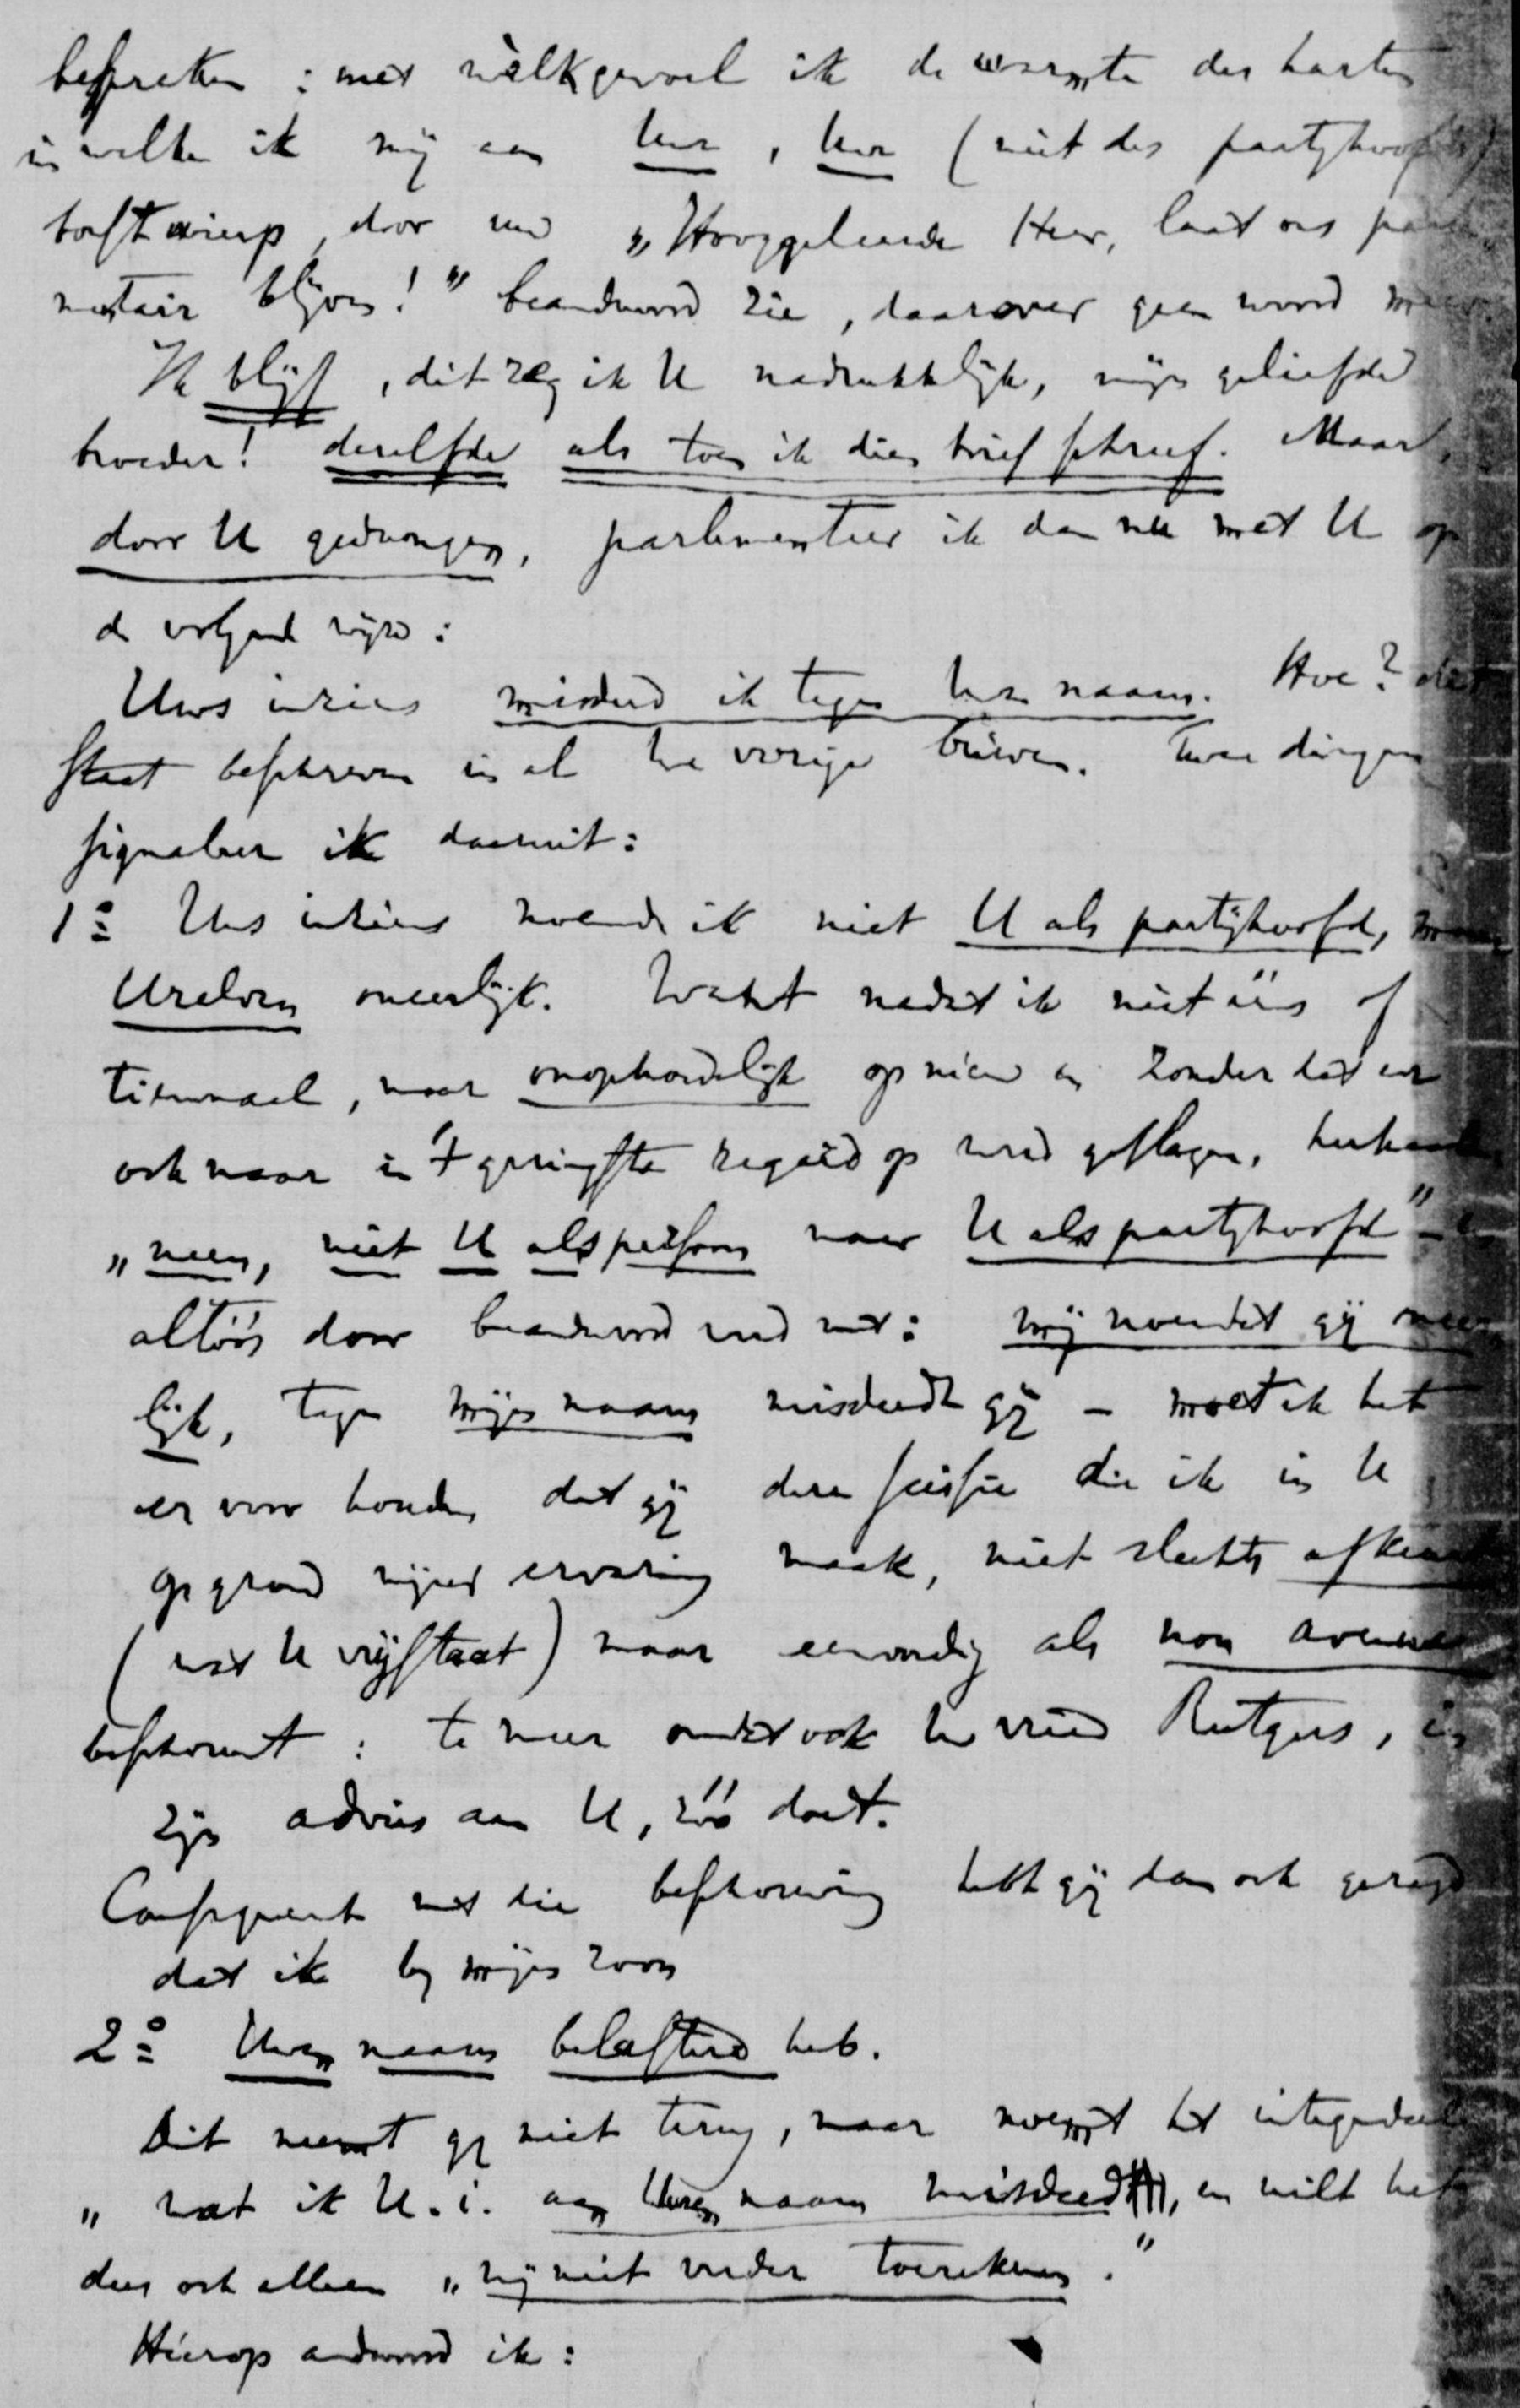 bespreken: met wèlk gevoel ik de warmte des harten
in welke ik mij aan Uw, Uw (niet des partijhoofds)
borst wierp, door een „Hooggeleerde Heer, laat ons
blijven!" beandwoord zie, daarover geen woord meer.
Ik blijf, dit zeg ik U nadrukkelijk, mijn geliefde
broeder! dezelfde als toen ik dien brief schreef. Maar,
door U gedwongen, parlementeer ik dan nu met U op
de volgende wijze:
Uws inziens misdeed ik tegen Uw naam. Hoe? dat
staat beschreven in al Uw vorige brieven. Twee dingen
signaleer ik daaruit:
1º Uws inziens noemde ik niet U als partijhoofd, maar
Uzelven oneerlijk. Want nadat ik niet ééns of
tienmaal, maar onophoudelijk op nieuw en zonder dat er
ook maar in 't geringste regard op werd geslagen, herhaalde
„neen, niet U als persoon maar U als partijhoofd" –
altóós door beandwoord werd met: mij noemdet gij oneer-
lijk, tegen mijn naam misdeedt gij – moet ik het
er voor houden dat gij deze scissie die ik in U
op grond mijner ervaring maak, niet slechts afkeurt
(wat U vrijstaat) maar eenvoudig als non avenue
beschouwt: te meer omdat ook Uw vriend Rutgers, in
zijn advies aan U, zóó doet.
Consequent met die beschouwing hebt gij dan ook gezegd
dat ik bij mijn zoon
2º Uwen naam belasterd heb.
Dit neemt gij niet terug, maar noemt het integendeel
„wat ik U.i. aan Uwen naam misdeed, en wilt het
dus ook alleen „mij niet verder toerekenen."
Hierop andwoord ik: